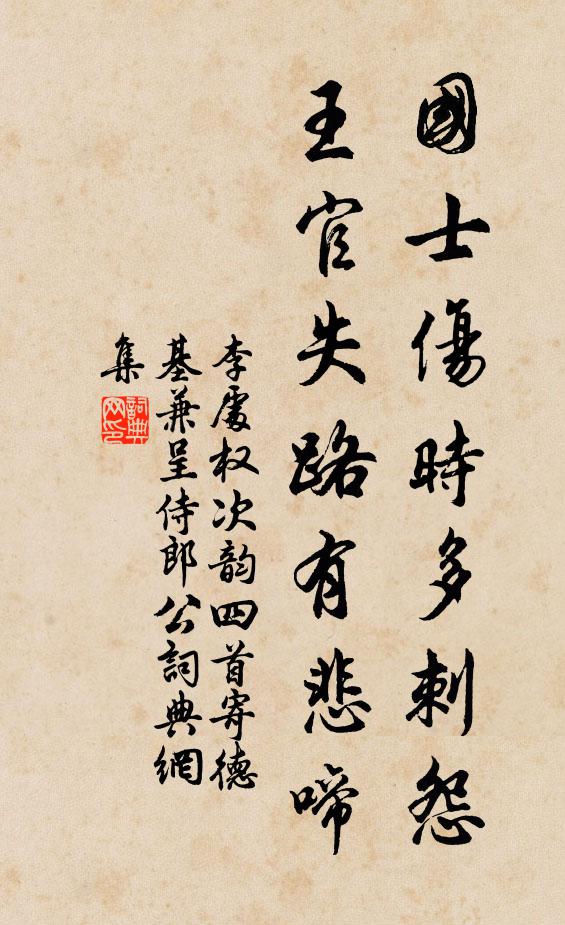 國士傷時多刺怨
王官失路有悲啼
李處权次韵四首寄德
基兼呈侍郎公詞典網
集
詞典网印